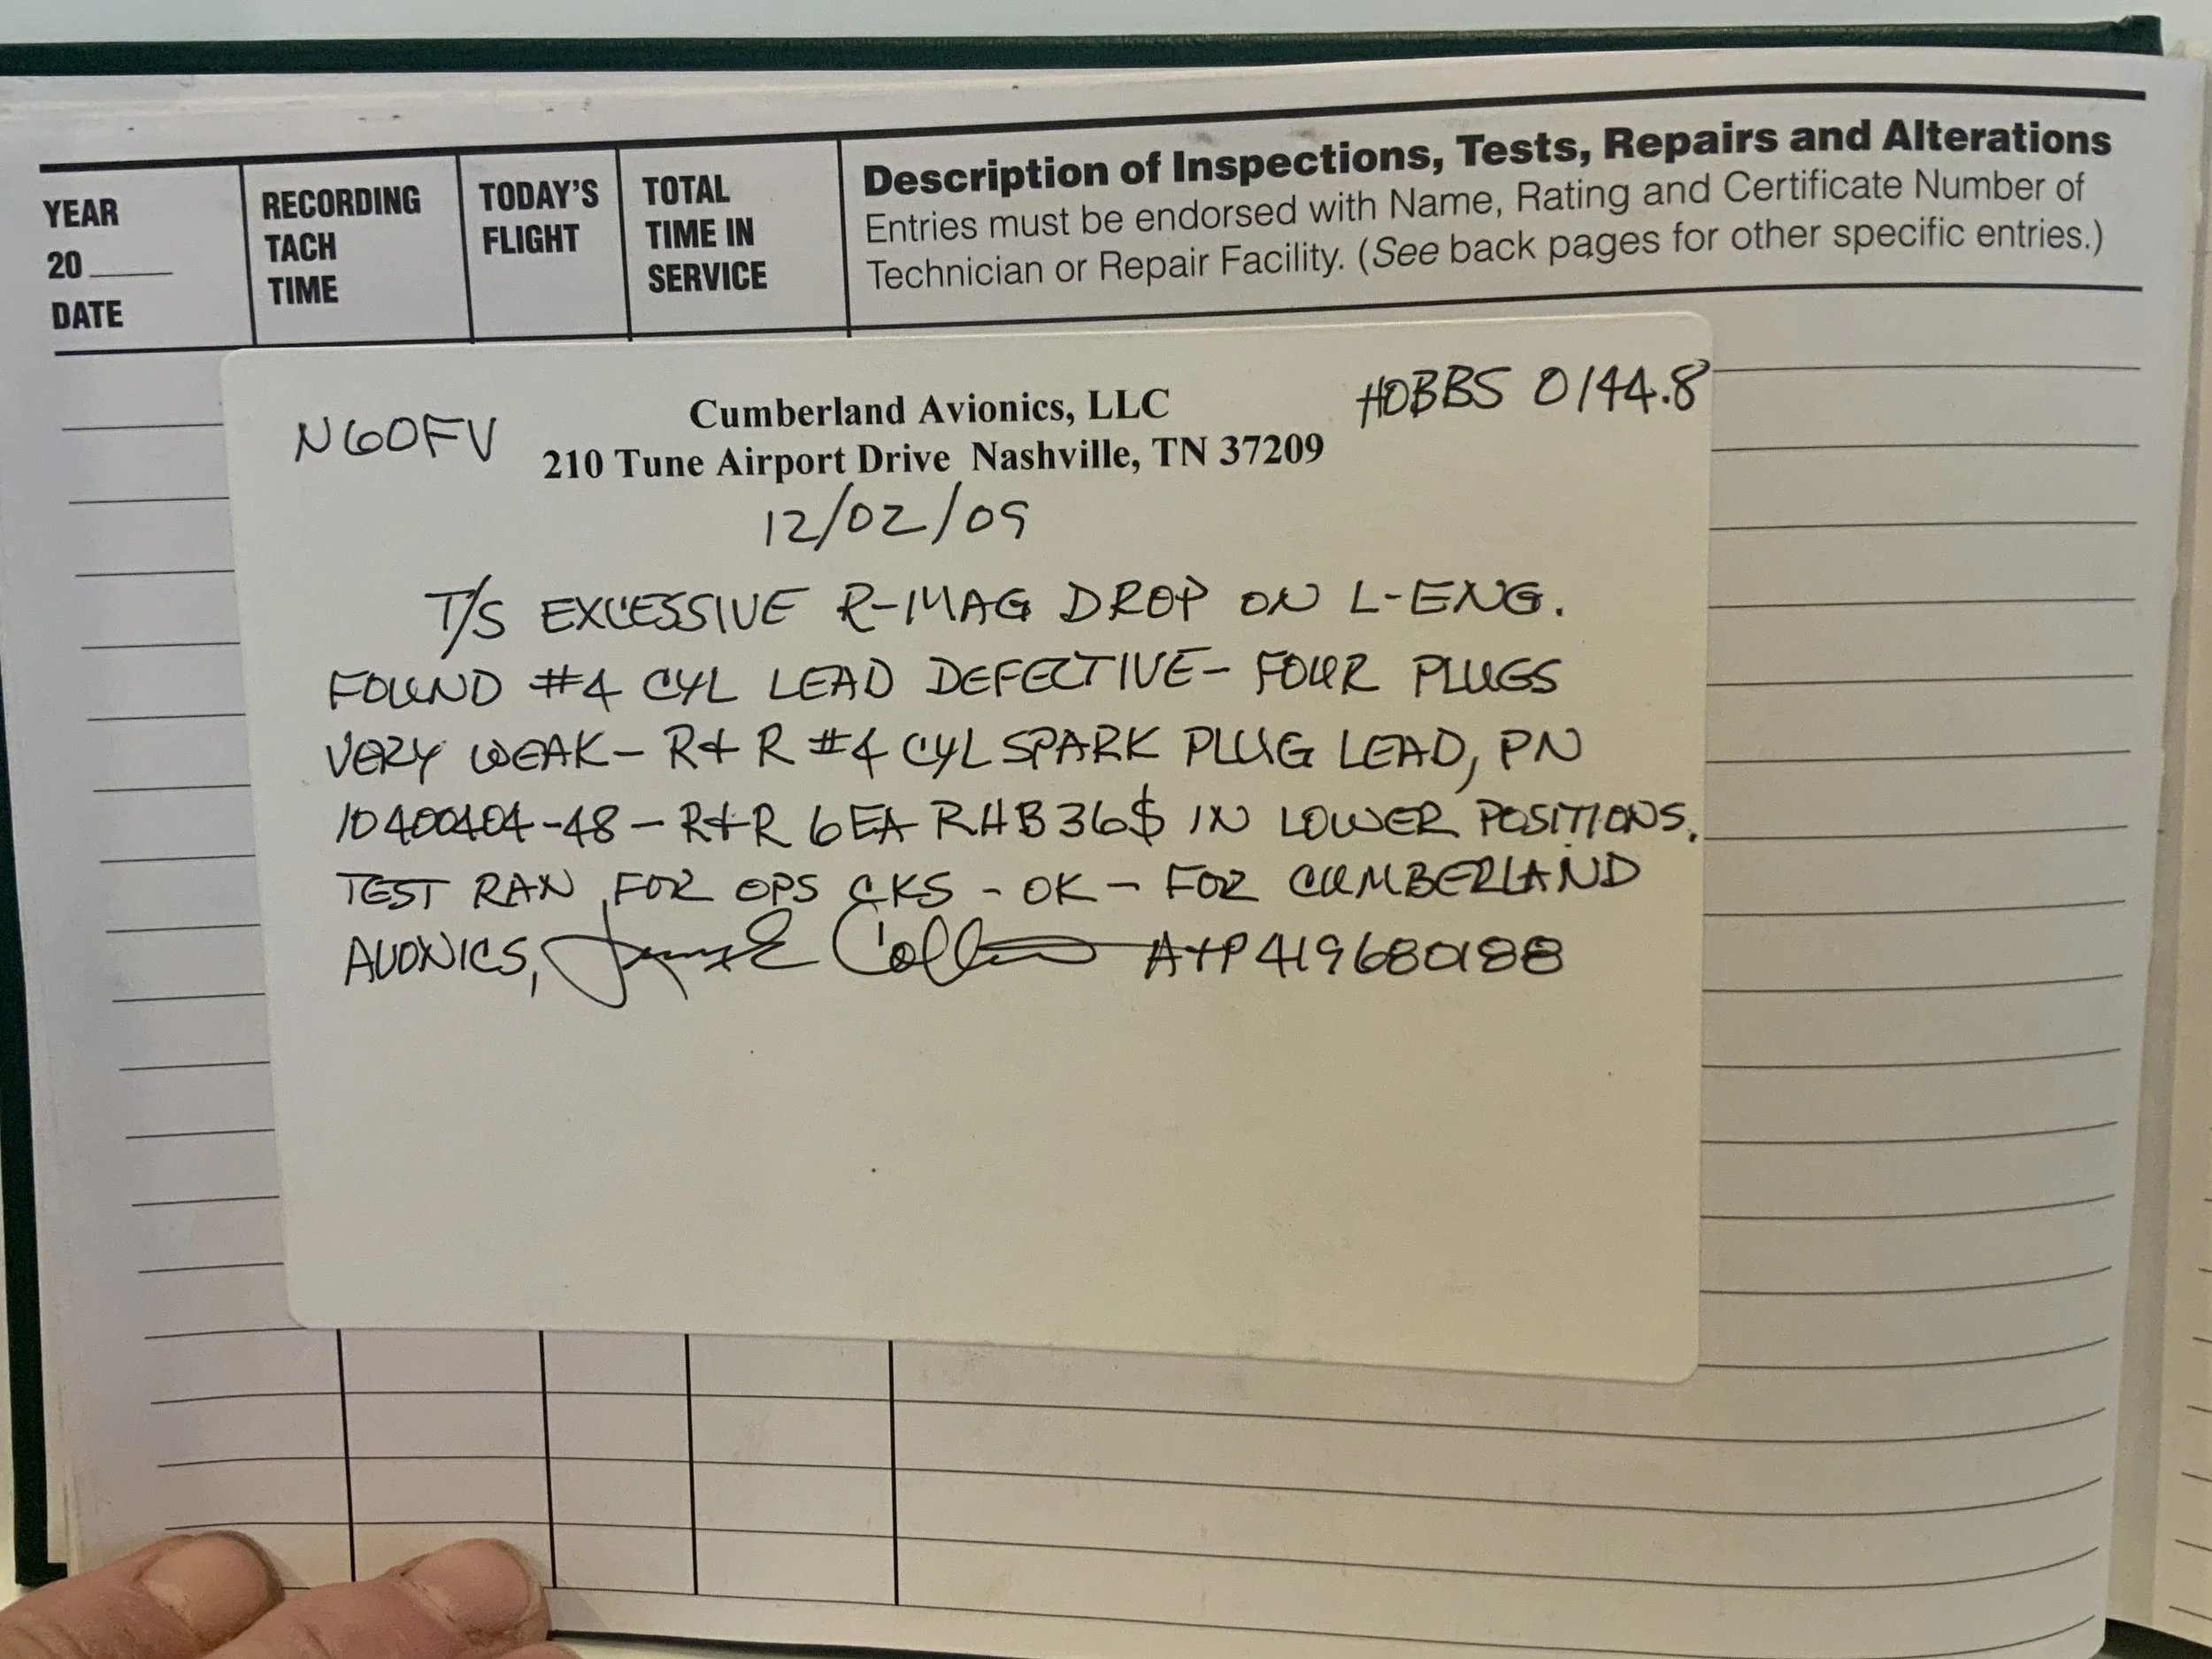 YEAR
20____
DATE
RECORDING
TACH
TIME
TODAY'S
FLIGHT
TOTAL
TIME IN
SERVICE
Description of Inspections, Tests, Repairs and Alterations
Entries must be endorsed with Name, Rating and Certificate Number of
Technician or Repair Facility. (See back pages for other specific entries.)
N60FV
Cumberland Avionics, LLC
HOBBS 0144.8
210 Tune Airport Drive Nashville, TN 37209
12/02/09
T/S EXCESSIVE R-MAG DROP ON L-ENG.
FOUND #4 CYL LEAD DEFECTIVE - FOUR PLUGS
VERY WEAK - R+R #4 CYL SPARK PLUG LEAD, PN
10400404-48 - R+R 6EA RHB36$ IN LOWER POSITIONS.
TEST RAN FOR OPS CKS - OK - FOR CUMBERLAND
AVIONICS, A+P 419680188